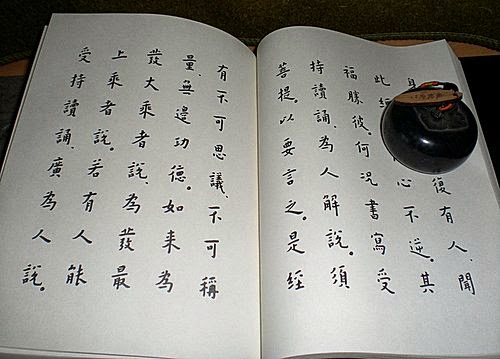 身復有人、聞
此經心不逆。其
福勝彼。何況書寫受
持讀誦、為人解說。須
菩提。以要言之。是經
有不可思議、不可稱
量、無邊功德。如來為
發大乘者說、為發最
上乘者說。若有人能
受持讀誦、廣為人說。